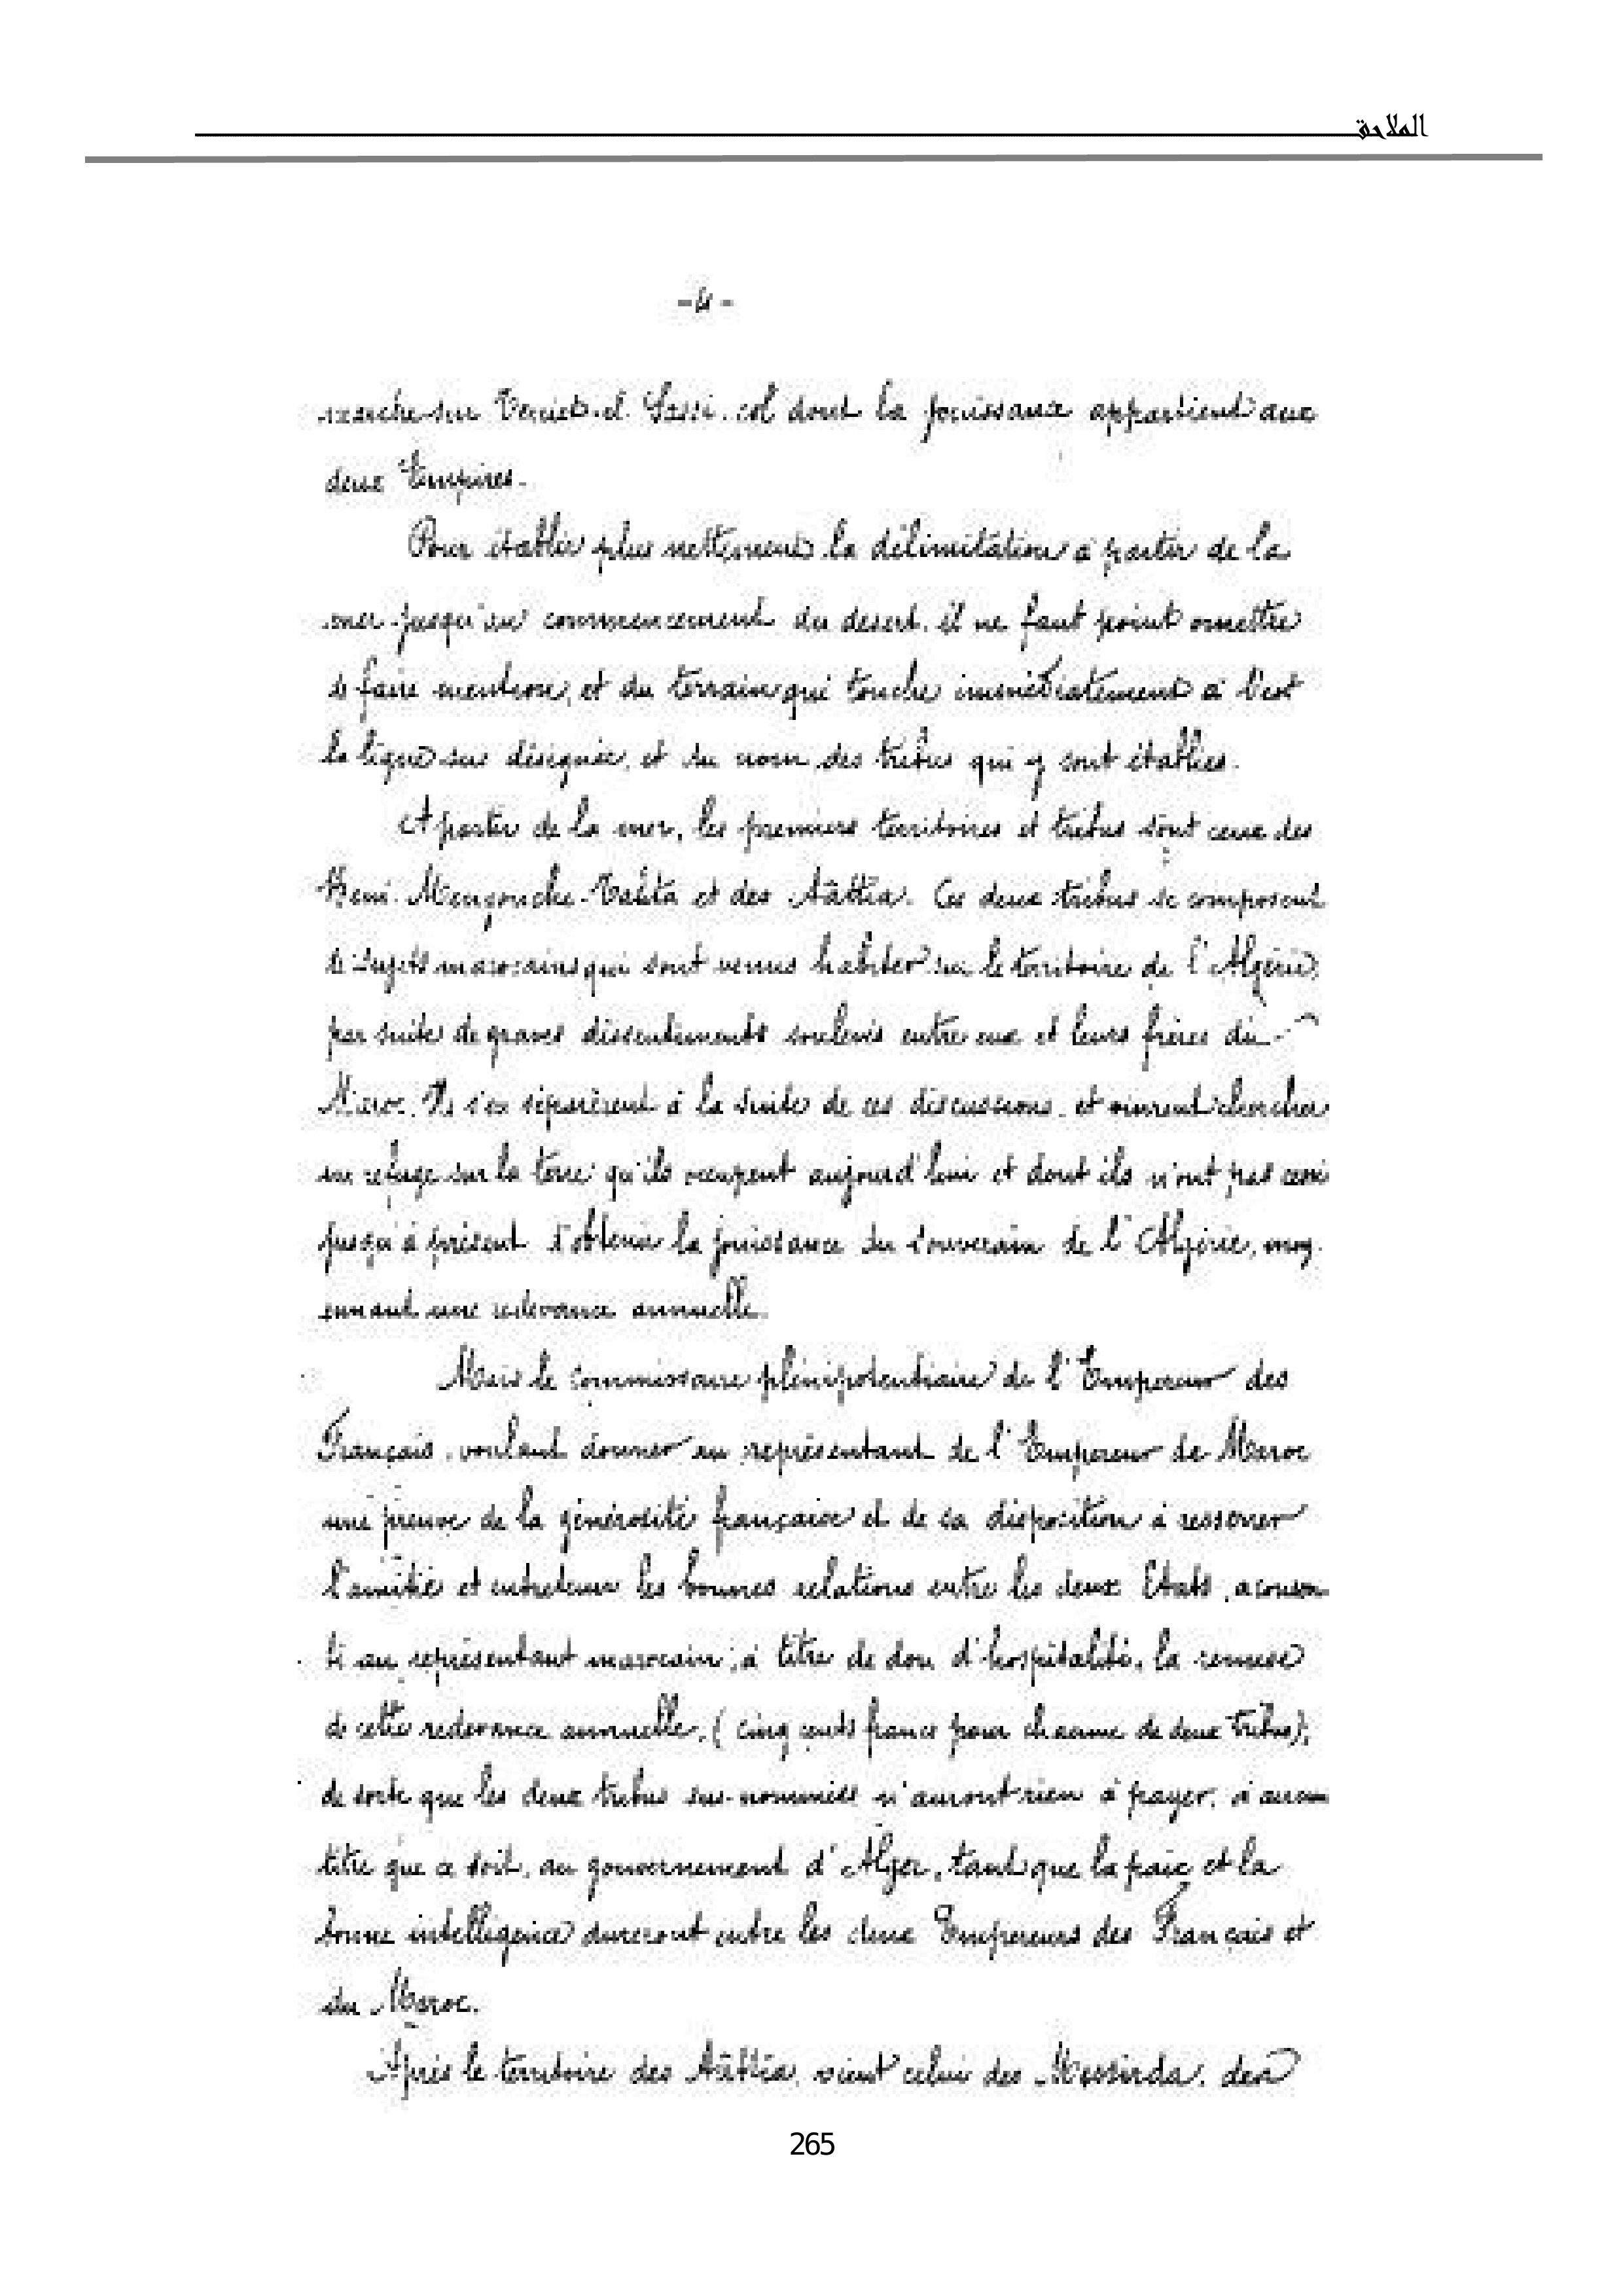 الملاحق
- 4 -
marche sur Teniet-el-Sassi, col dont la jouissance appartient aux
deux Empires.
Pour établir plus nettement la délimitation à partir de la
mer jusqu'au commencement du desert, il ne faut point omettre
de faire mention, et du terrain qui touche immédiatement à l'est
la ligne sus désignée, et du nom des tribus qui y sont établies.
A partir de la mer, les premiers territoires et tribus sont ceux des
Beni-Mengouche-Tahta et des Aâttïa. Ces deux tribus se composent
de sujets marocains qui sont venus habiter sur le territoire de l'Algérie,
par suite de graves dissentiments soulevés entre eux et leurs frères du
Maroc. Ils s'en séparèrent à la suite de ces discussions, et vinrent chercher
un refuge sur la terre qu'ils occupent aujourd'hui et dont ils n'ont pas cessé
jusqu'à présent d'obtenir la jouissance du souverain de l'Algérie, moy-
ennant une redevance annuelle.
Mais le commissaire plénipotentiaire de l'Empereur des
Français, voulant donner au représentant de l'Empereur de Maroc
une preuve de la générosité française et de sa disposition à resserrer
l'amitié et entretenir les bonnes relations entre les deux Etats, a consen
ti au représentant marocain, à titre de don d'hospitalité, la remise
de cette redevance annuelle, (cinq cents francs pour chacune de deux tribus);
de sorte que les deux tribus sus-nommées n'auront rien à payer, à aucun
titre que ce soit, au gouvernement d'Alger, tant que la paix et la
bonne intelligence dureront entre les deux Empereurs des Français et
du Maroc.
Après le territoire des Aâttïa, vient celui des Messirda, des
265